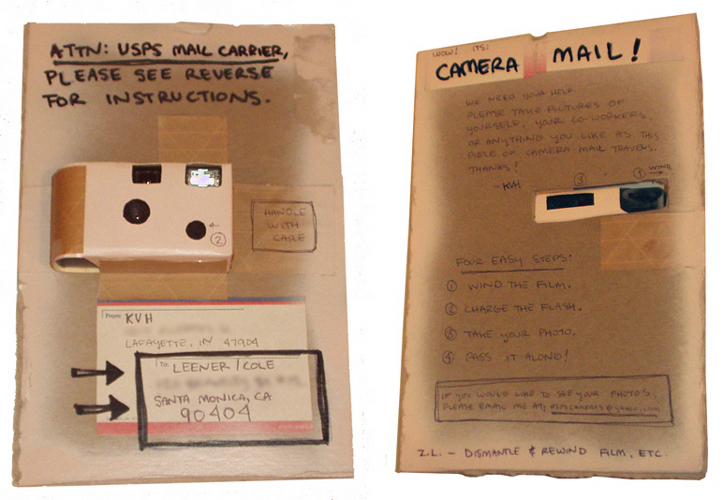 ATTN: USPS MAIL CARRIER,
PLEASE SEE REVERSE
FOR INSTRUCTIONS.
←
②
HANDLE
WITH
CARE
From: KVH
LAFAYETTE, IN 47904
To: LEENER/COLE
SANTA MONICA, CA
90404
WOW! ITS:
CAMERA MAIL!
WE NEED YOUR HELP.
PLEASE TAKE PICTURES OF
YOURSELF, YOUR CO-WORKERS,
OR ANYTHING YOU LIKE AS THIS
PIECE OF CAMERA-MAIL TRAVELS.
THANKS!
-KVH
③
① WIND
→
FOUR EASY STEPS:
① WIND THE FILM.
② CHARGE THE FLASH.
③ TAKE YOUR PHOTO.
④ PASS IT ALONG!
IF YOU WOULD LIKE TO SEE YOUR PHOTOS,
PLEASE EMAIL ME AT:
Z.L. - DISMANTLE & REWIND FILM, ETC.